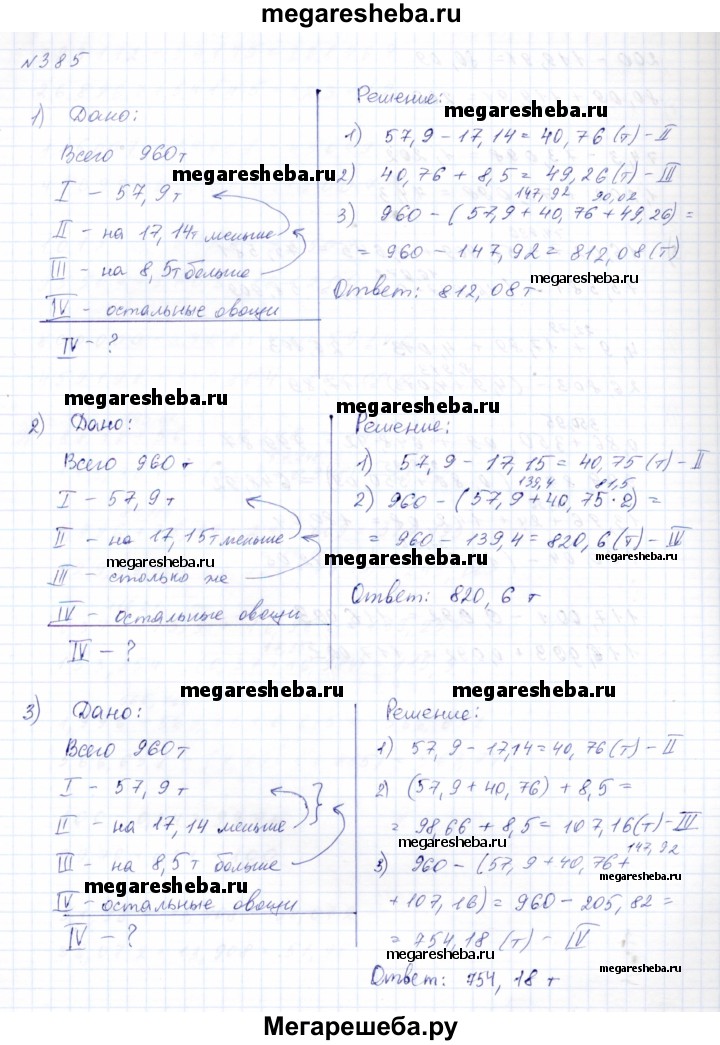 megaresheba.ru
№385
1) Дано:
Всего 960т
I - 57,9т
II - на 17,14т меньше
III - на 8,5т больше
IV - остальные овощи
IV - ?
Решение:
megaresheba.ru
1) 57,9 - 17,14 = 40,76 (т) - II
megaresheba.ru
2) 40,76 + 8,5 = 49,26 (т) - III
147,92 90,02
3) 960 - (57,9 + 40,76 + 49,26) =
= 960 - 147,92 = 812,08 (т)
megaresheba.ru
Ответ: 812,08 т
megaresheba.ru
megaresheba.ru
2) Дано:
Всего 960 т
I - 57,9 т
II - на 17,15т меньше
megaresheba.ru
III - столько же
IV - остальные овощи
IV - ?
Решение:
1) 57,9 - 17,15 = 40,75 (т) - II
139,4 81,5
2) 960 - (57,9 + 40,75 · 2) =
= 960 - 139,4 = 820,6 (т) - IV
megaresheba.ru
megaresheba.ru
Ответ: 820,6 т
megaresheba.ru
megaresheba.ru
3) Дано:
Всего 960т
I - 57,9 т
II - на 17,14 меньше
III - на 8,5т больше
megaresheba.ru
IV - остальные овощи
IV - ?
Решение:
1) 57,9 - 17,14 = 40,76 (т) - II
2) (57,9 + 40,76) + 8,5 =
= 98,66 + 8,5 = 107,16 (т) - III
megaresheba.ru
147,92
3) 960 - (57,9 + 40,76 +
+ 107,16) = 960 - 205,82 =
= 754,18 (т) - IV
megaresheba.ru
Ответ: 754,18 т
Мегарешеба.ру